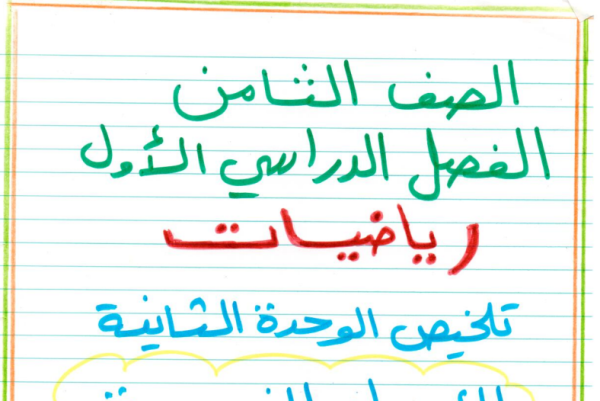 الصف الثامن
الفصل الدراسي الأول
رياضيات
تلخيص الوحدة الثانية